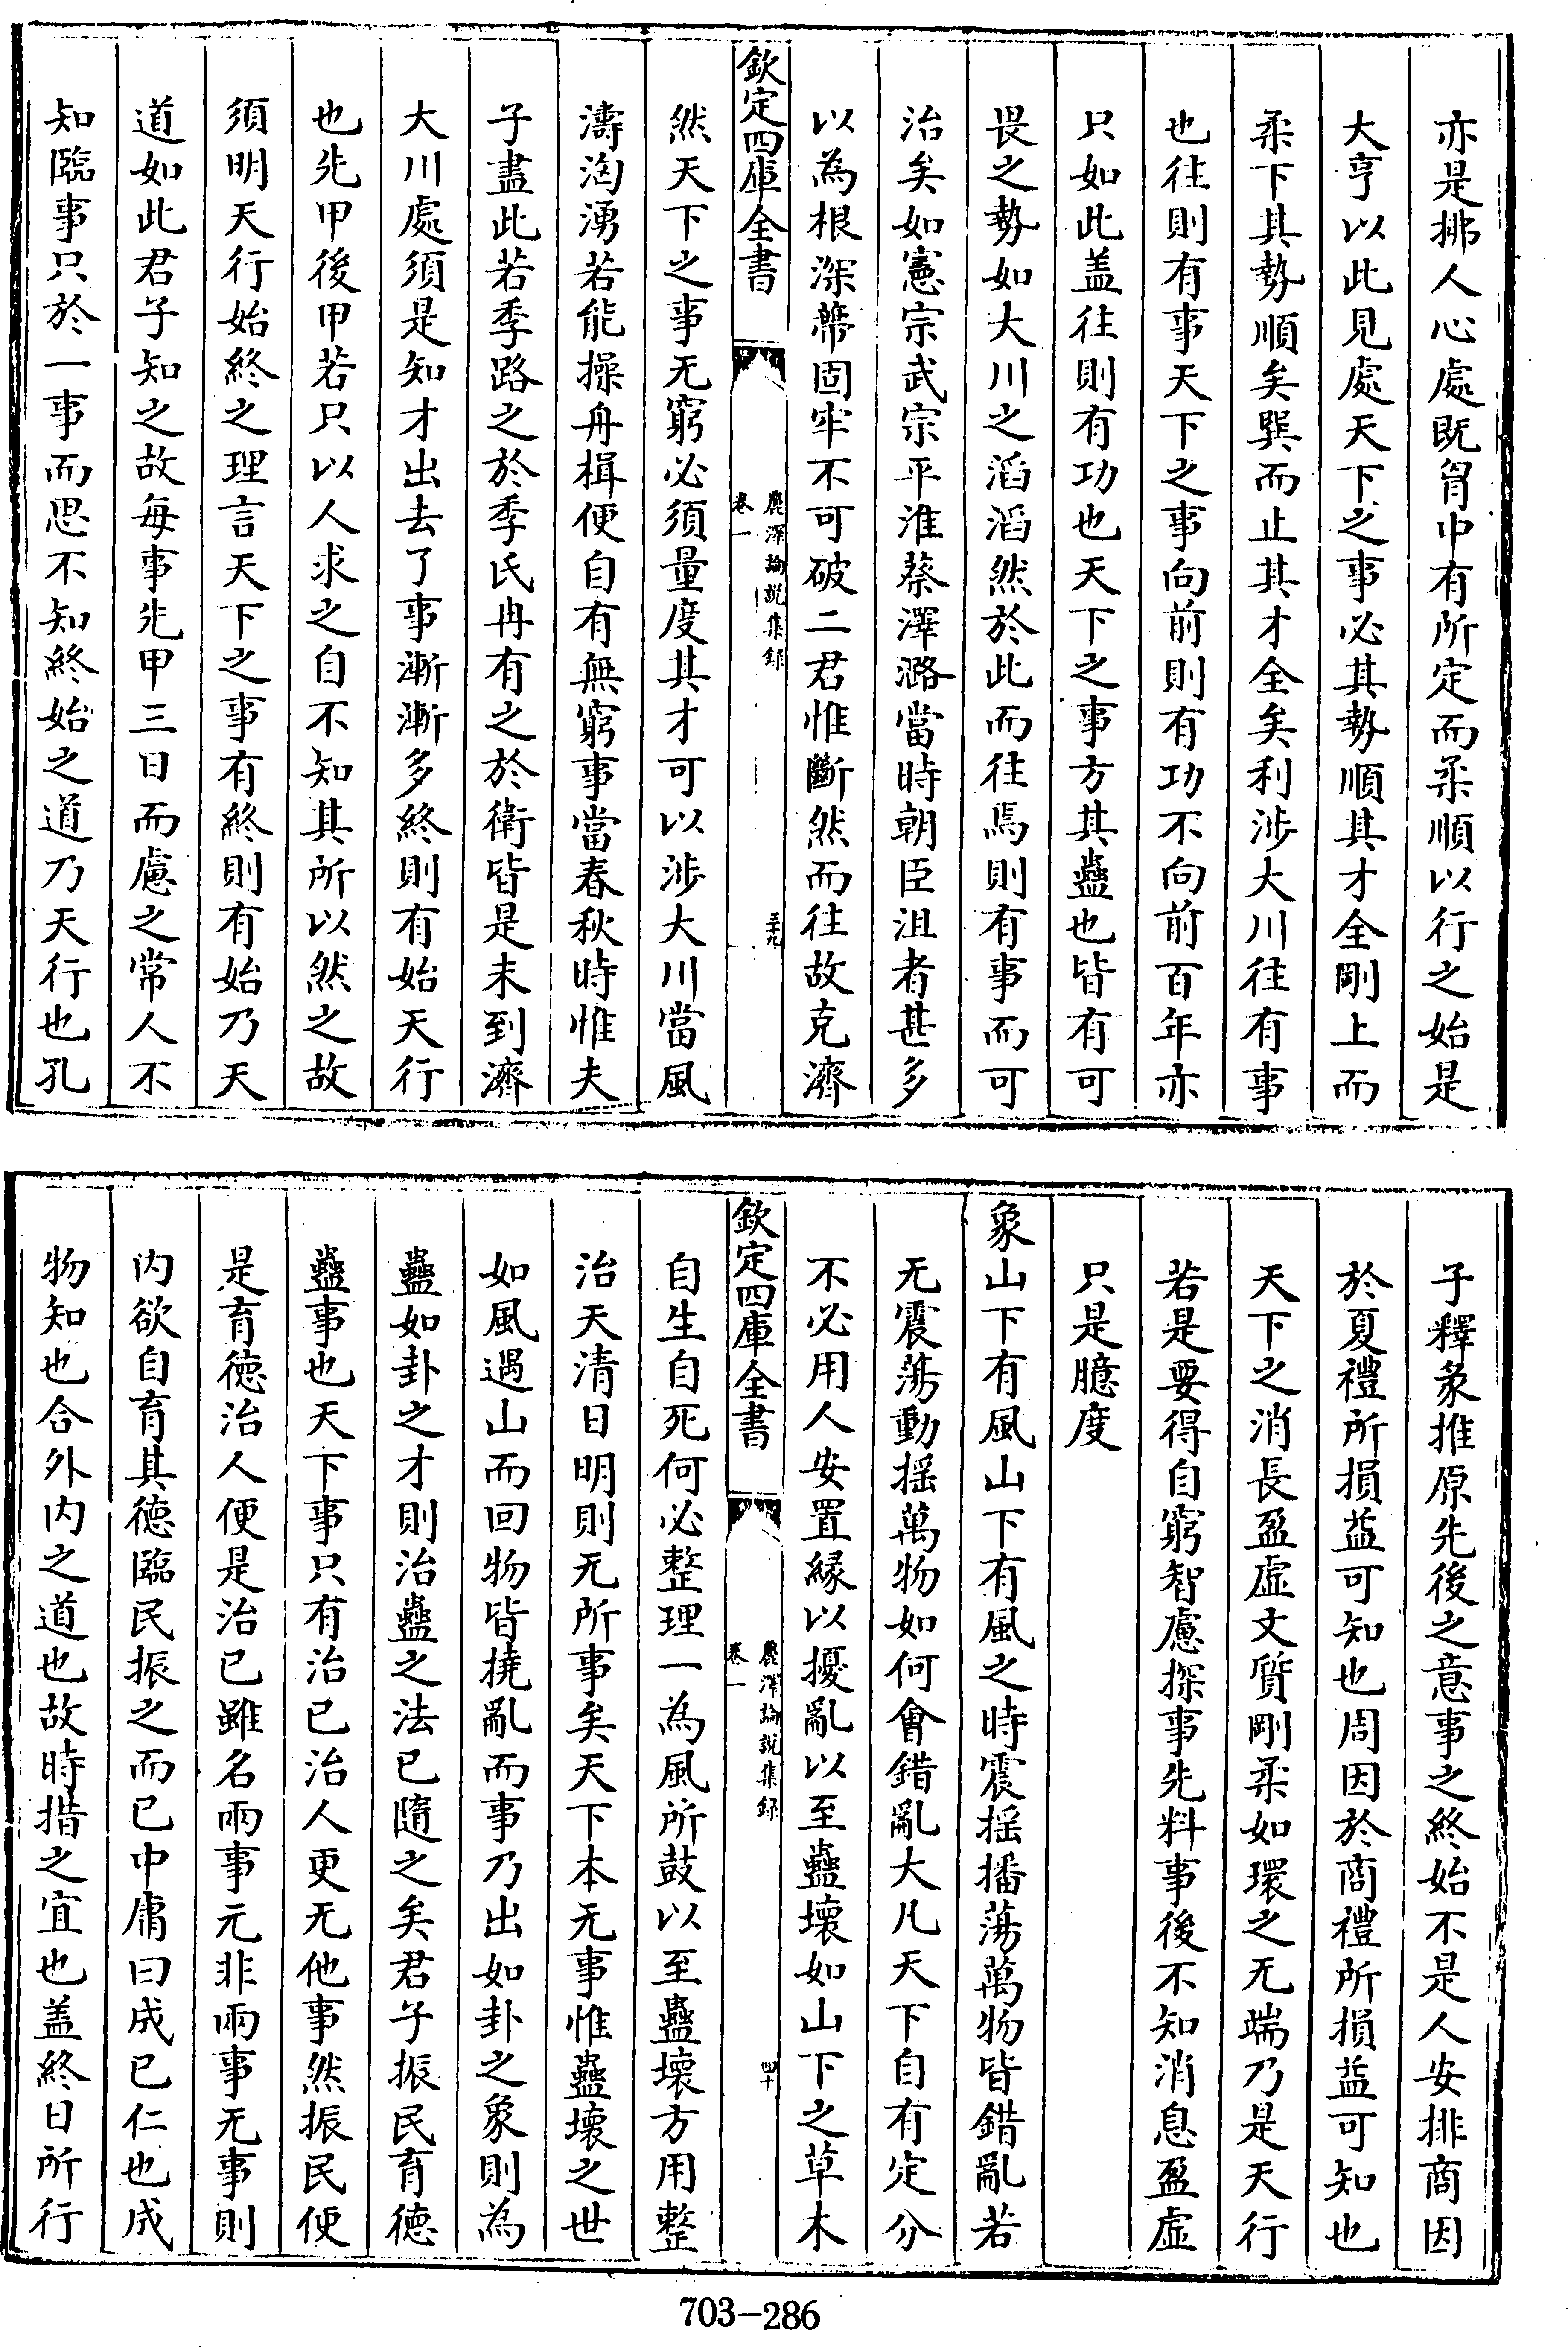 亦是拂人心處既胷中有所定而柔順以行之始是
大亨以此見處天下之事必其勢順其才全剛上而
柔下其勢順矣巽而止其才全矣利涉大川往有事
也往則有事天下之事向前則有功不向前百年亦
只如此盖往則有功也天下之事方其蠱也皆有可
畏之勢如大川之滔滔然於此而往焉則有事而可
治矣如憲宗武宗平淮蔡澤潞當時朝臣沮者甚多
以為根深蔕固牢不可破二君惟斷然而往故克濟
欽定四庫全書
麗澤論說集錄
卷一
三十九
然天下之事无窮必須量度其才可以涉大川當風
濤洶湧若能操舟楫便自有無窮事當春秋時惟夫
子盡此若季路之於季氏冉有之於衛皆是未到濟
大川處須是知才出去了事漸漸多終則有始天行
也先甲後甲若只以人求之自不知其所以然之故
須明天行始終之理言天下之事有終則有始乃天
道如此君子知之故毎事先甲三日而慮之常人不
知臨事只於一事而思不知終始之道乃天行也孔
子釋彖推原先後之意事之終始不是人安排商因
於夏禮所損益可知也周因於商禮所損益可知也
天下之消長盈虛文質剛柔如環之无端乃是天行
若是要得自窮智慮探事先料事後不知消息盈虛
只是臆度
象山下有風山下有風之時震揺播蕩萬物皆錯亂若
无震蕩動揺萬物如何會錯亂大凡天下自有定分
不必用人安置縁以擾亂以至蠱壞如山下之草木
欽定四庫全書
麗澤論說集錄
卷一
四十
自生自死何必整理一為風所鼓以至蠱壞方用整
治天清日明則无所事矣天下本无事惟蠱壞之世
如風遇山而回物皆撓亂而事乃出如卦之象則為
蠱如卦之才則治蠱之法已隨之矣君子振民育徳
蠱事也天下事只有治已治人更无他事然振民便
是育徳治人便是治已雖名兩事元非兩事无事則
内欲自育其徳臨民振之而已中庸曰成已仁也成
物知也合外内之道也故時措之宜也盖終日所行
703-286